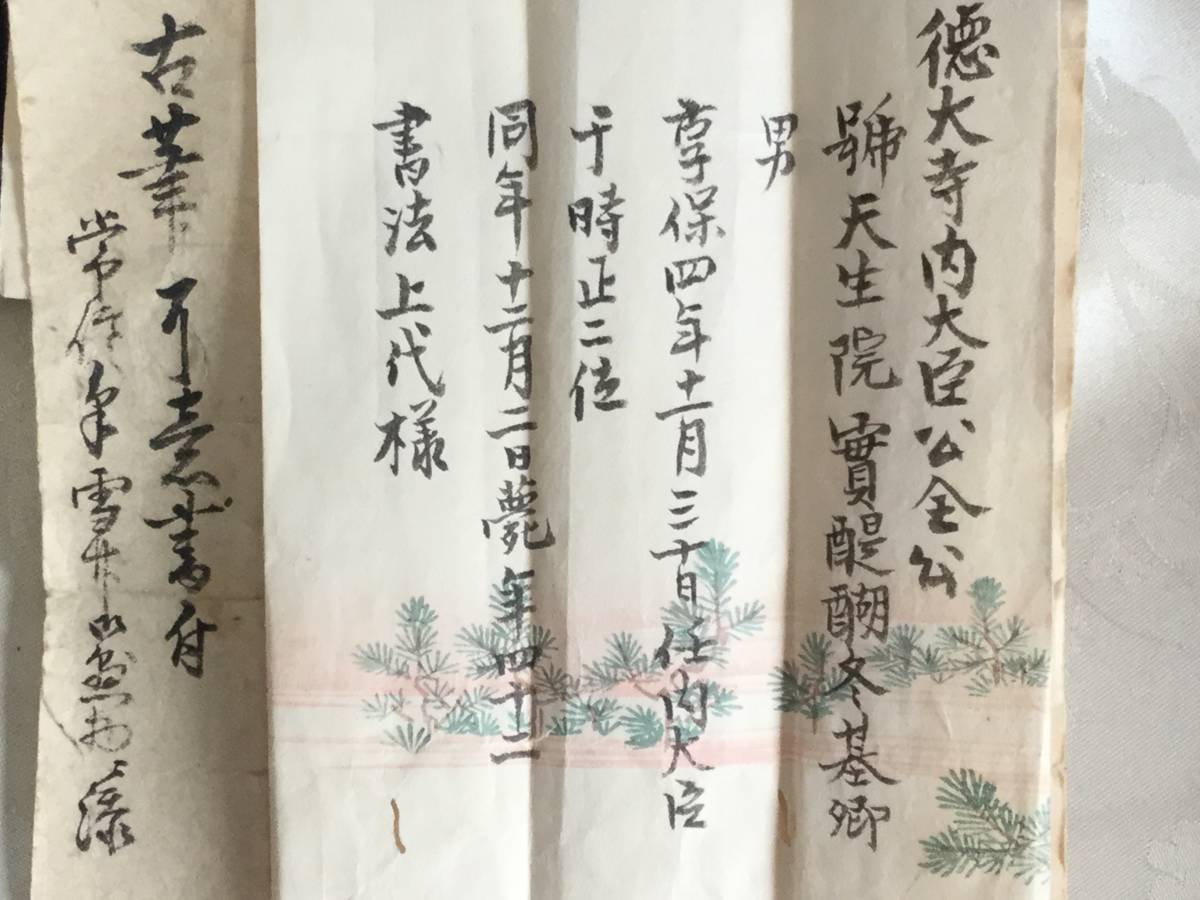 德大寺内大臣公全公
號天生院實醍醐冬基卿
男
享保四年十一月三十日任内大臣
于時正二位
同年十二月二日薨年四十二
書法上代様
古筆了意書付